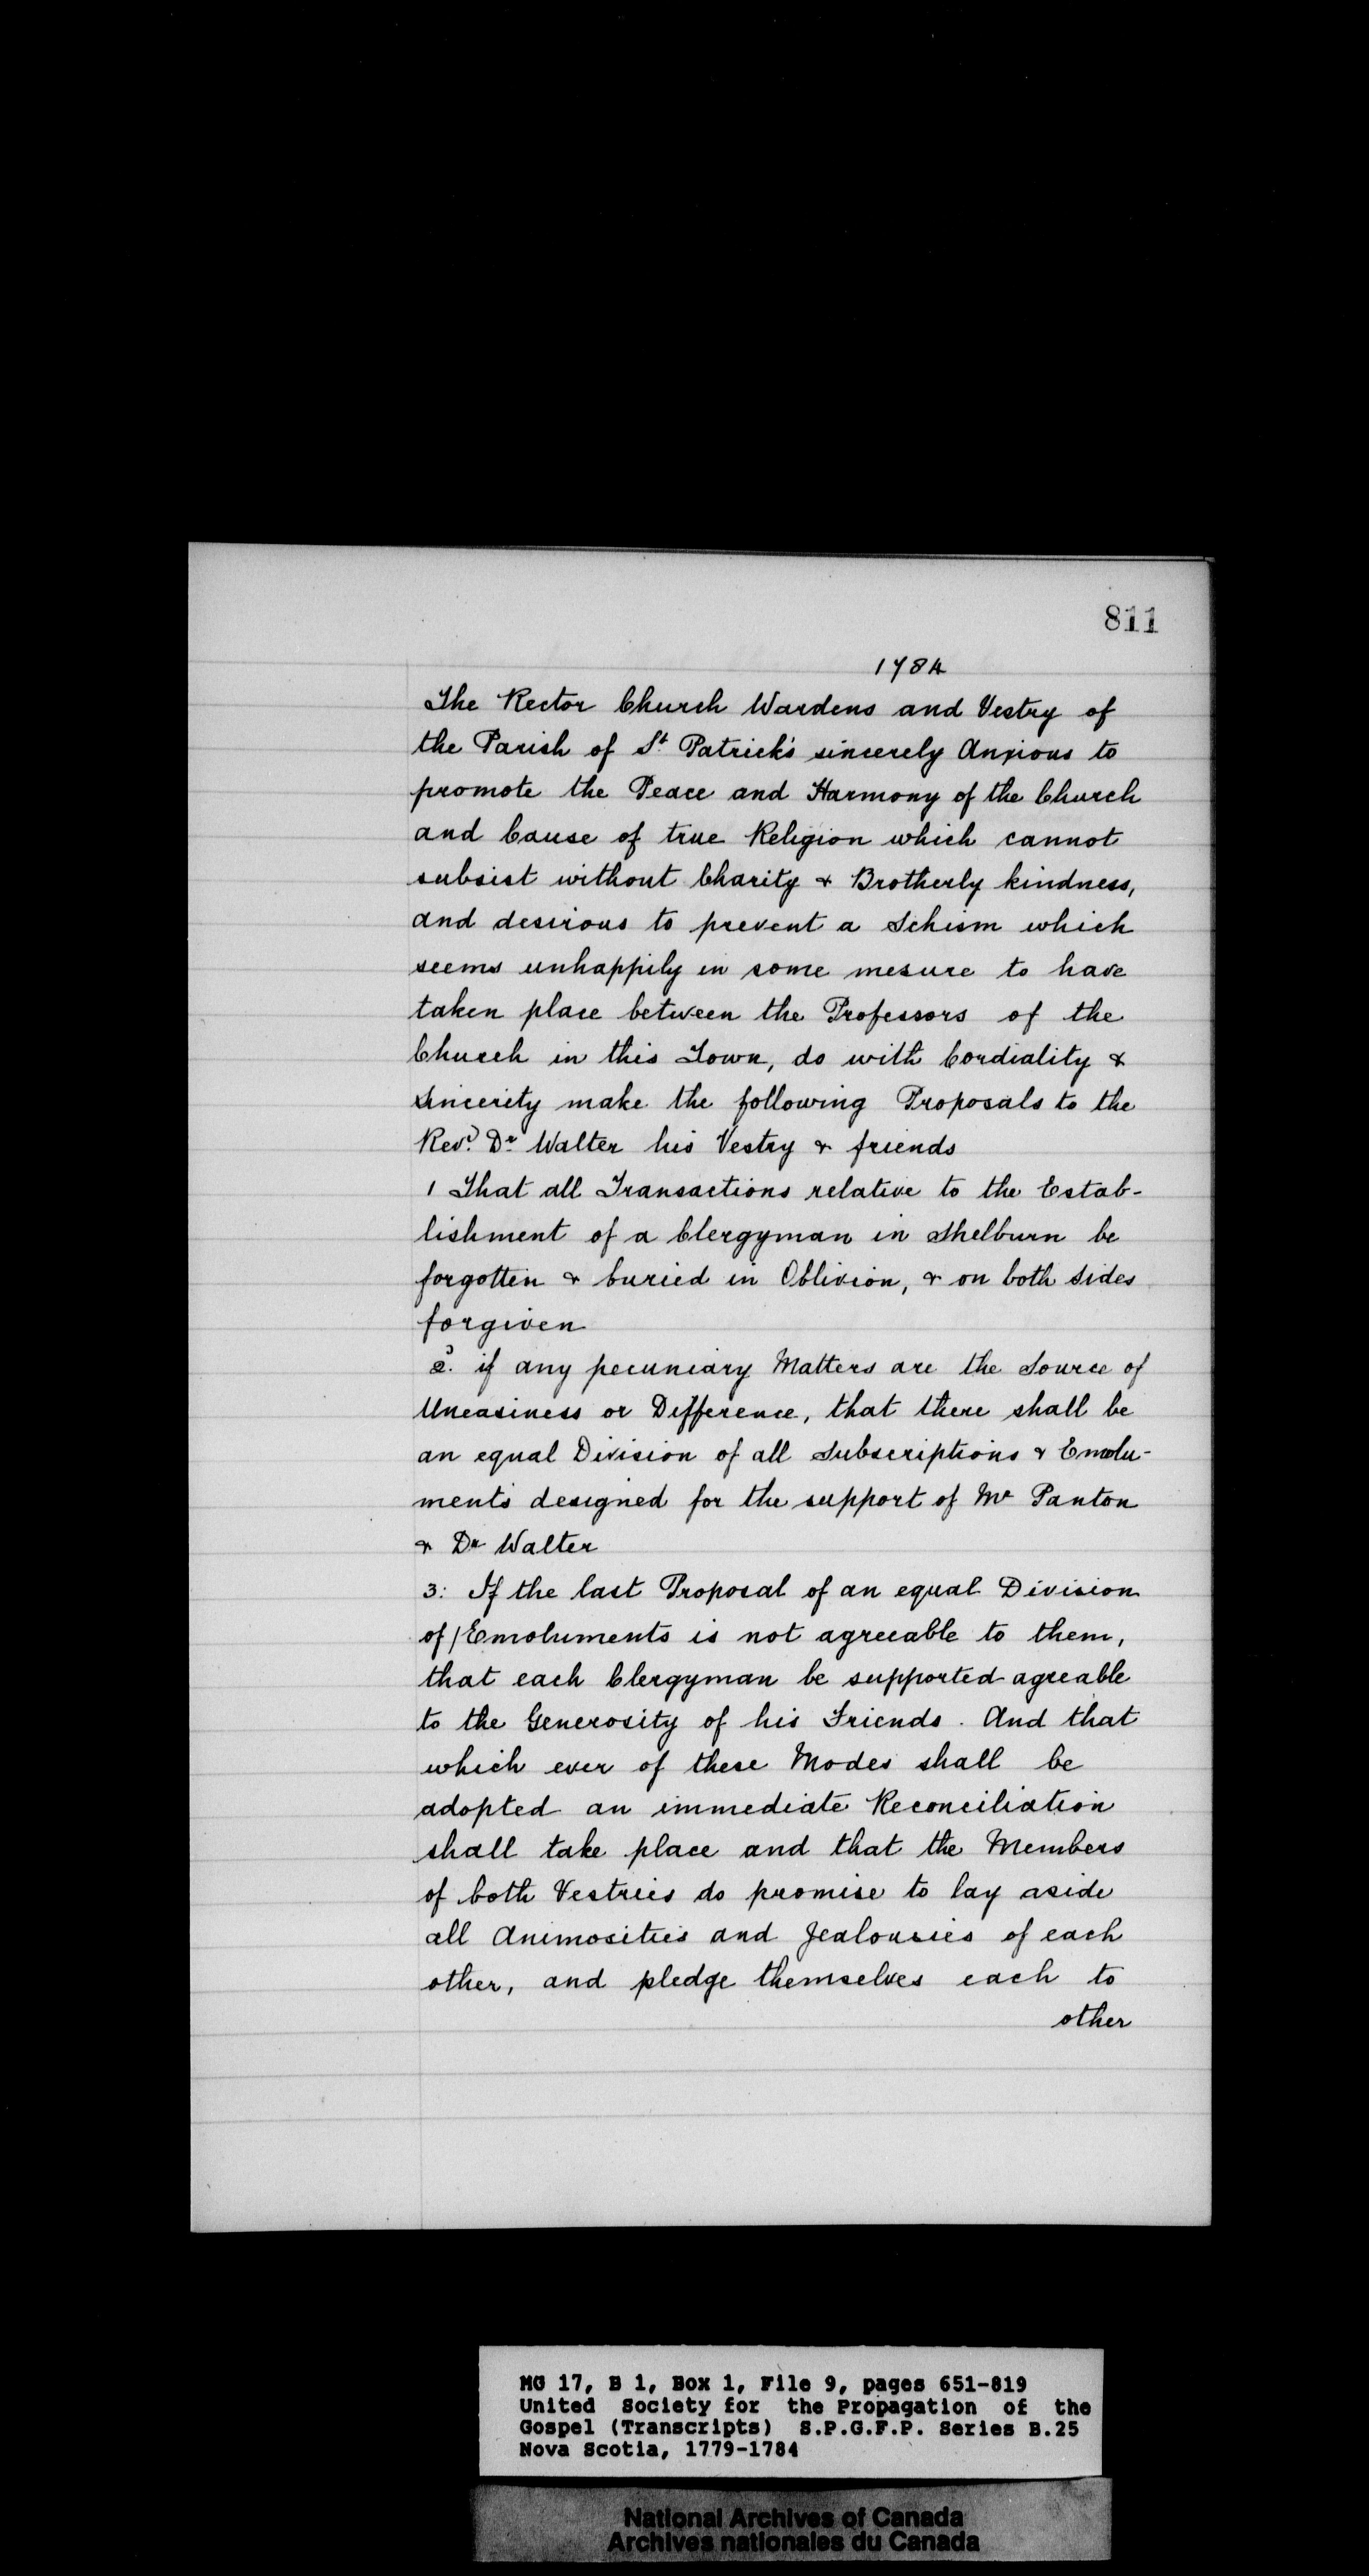 811
1784
The Rector Church Wardens and Vestry of
the Parish of St. Patrick's sincerely Anxious to
promote the Peace and Harmony of the Church
and Cause of true Religion which cannot
subsist without Charity & Brotherly kindness,
and desirous to prevent a Schism which
seems unhappily in some mesure to have
taken place between the Professors of the
Church in this Town, do with Cordiality &
Sincerity make the following Proposals to the
Revd. Dr. Walter his Vestry & friends
1 That all Transactions relative to the Estab-
lishment of a Clergyman in Shelburn be
forgotten & buried in Oblivion, & on both sides
forgiven
2d. if any pecuniary Matters are the Source of
Uneasiness or Difference, that there shall be
an equal Division of all Subscriptions & Emolu-
ments designed for the support of Mr Panton
& Dr Walter
3: If the last Proposal of an equal Division
of / Emoluments is not agreeable to them,
that each Clergyman be supported agreable
to the Generosity of his Friends. And that
which ever of these Modes shall be
adopted an immediate Reconciliation
shall take place and that the Members
of both Vestries do promise to lay aside
all Animosities and Jealousies of each
other, and pledge themselves each to
other
MG 17, B 1, Box 1, File 9, pages 651-819
United Society for the Propagation of the
Gospel (Transcripts) S.P.G.F.P. Series B.25
Nova Scotia, 1779-1784
National Archives of Canada
Archives nationales du Canada